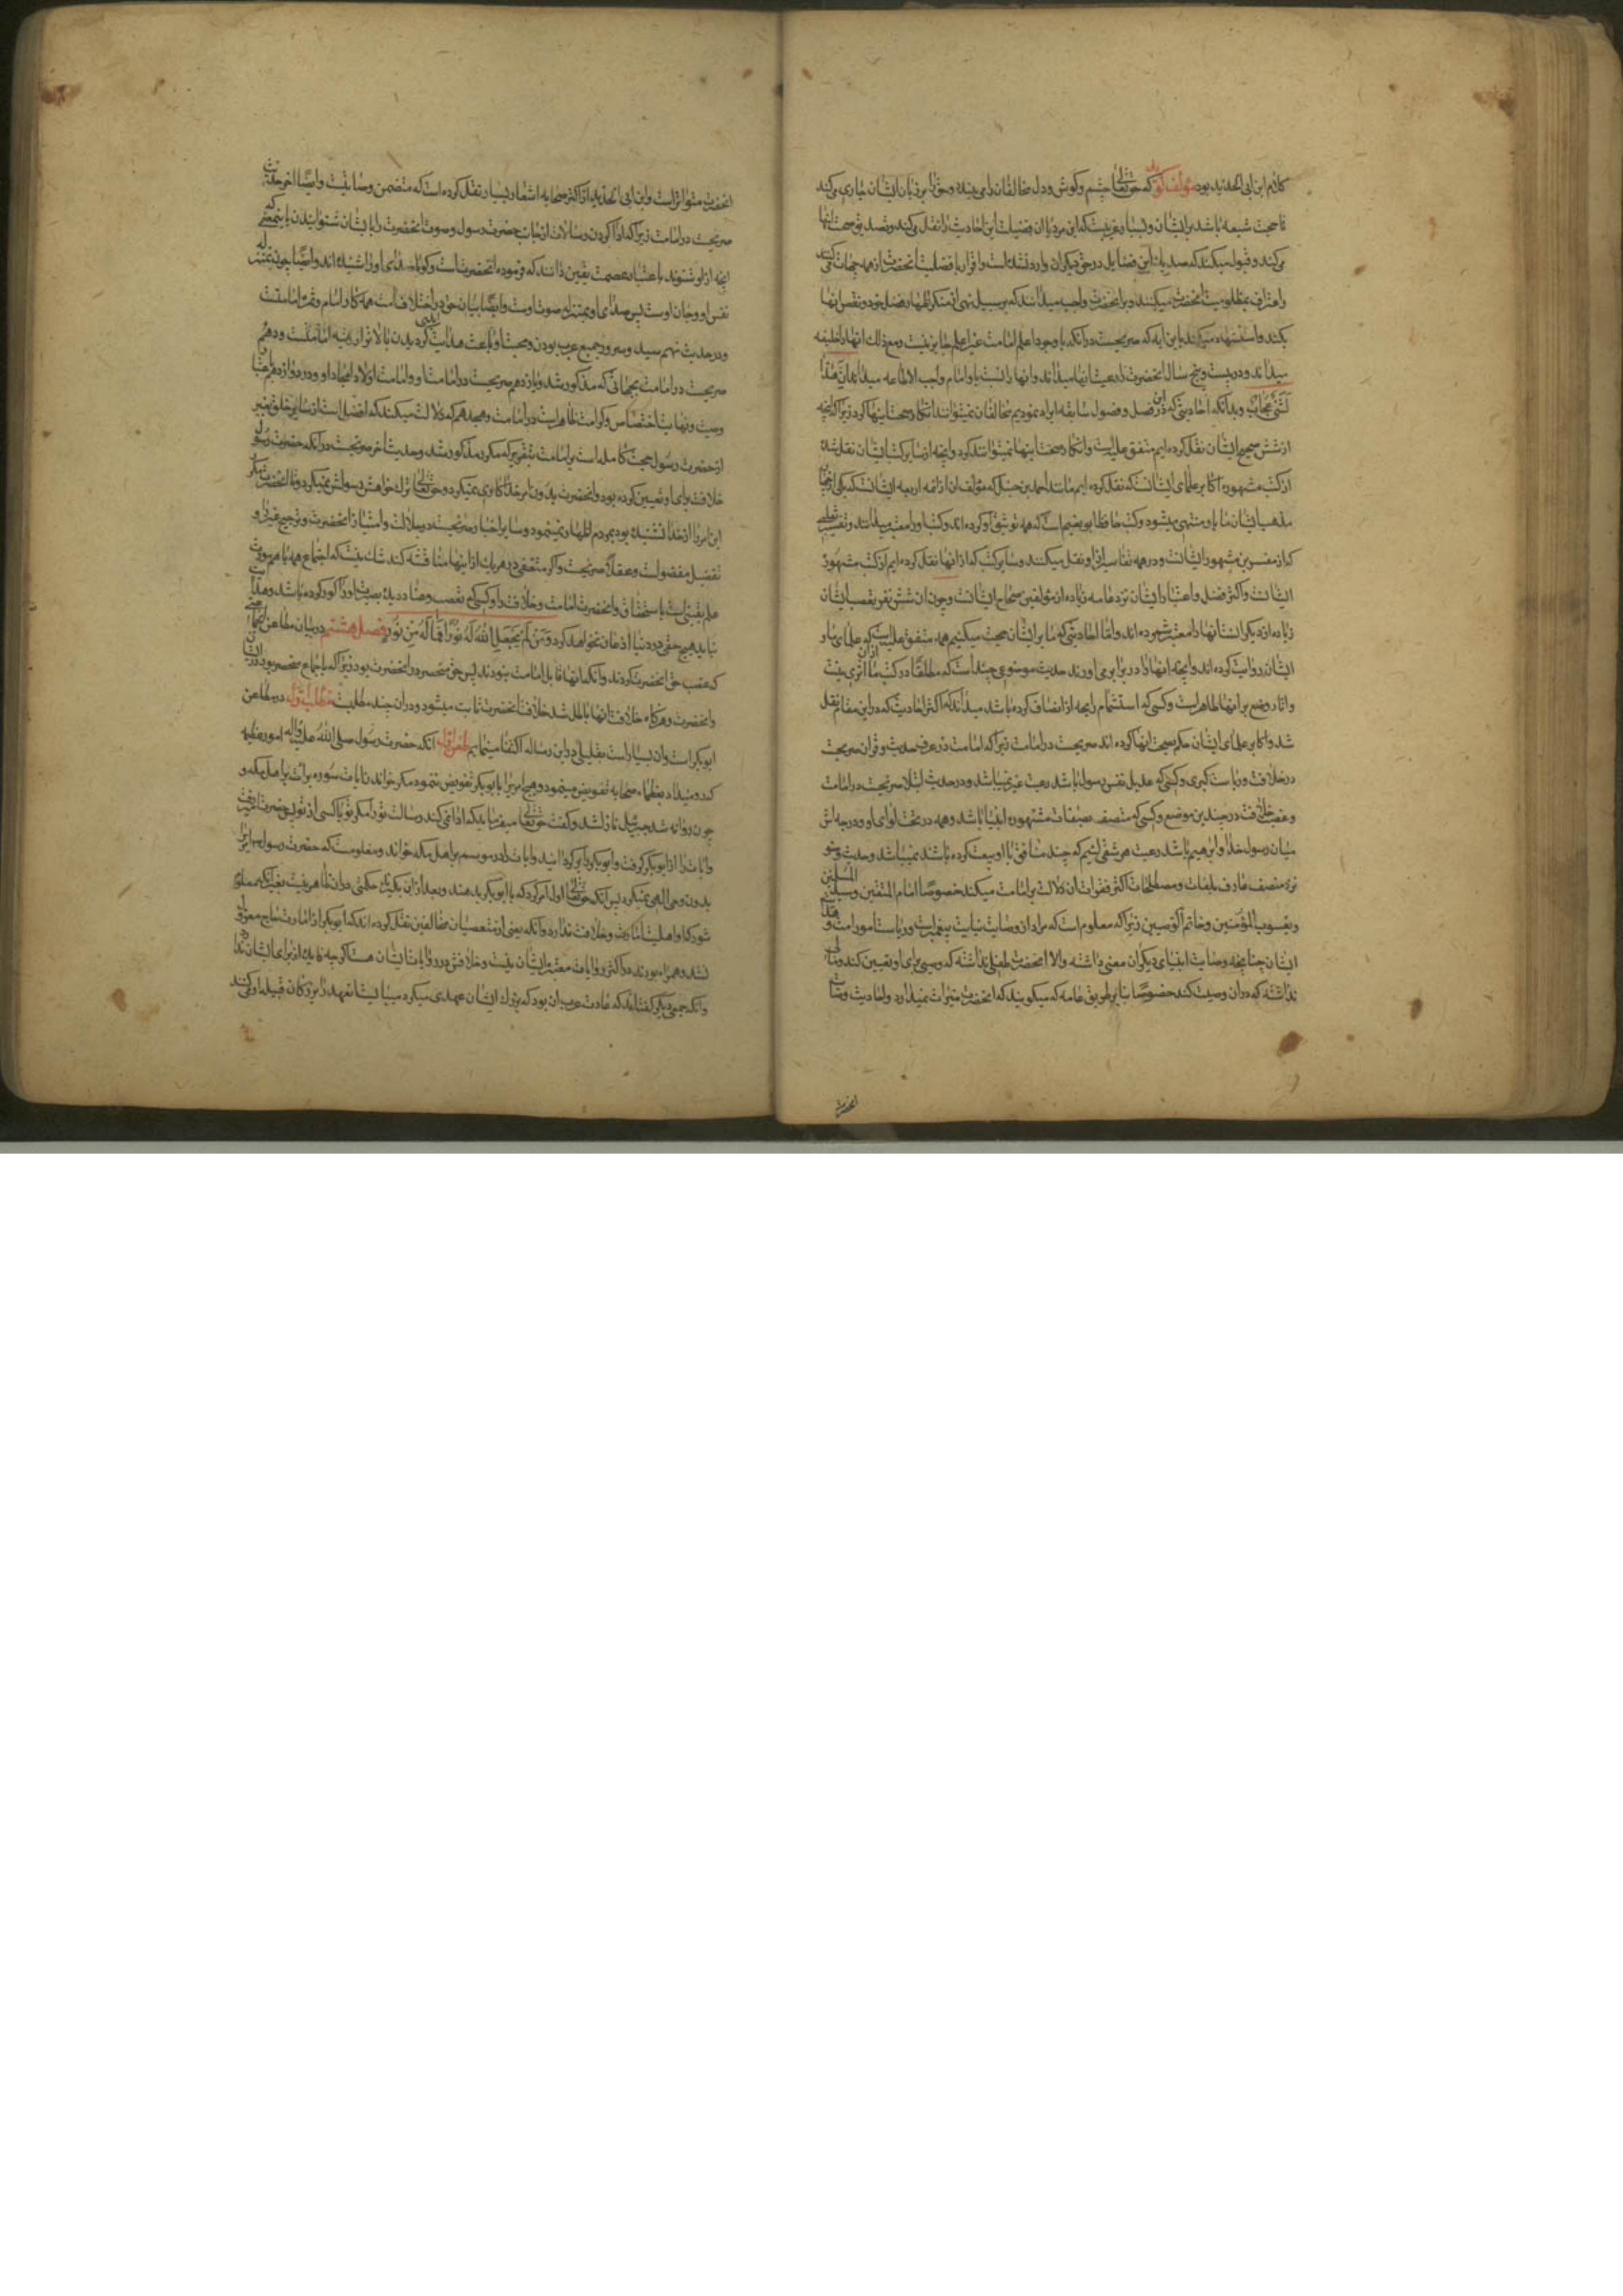 کلام ابن ابی الحدید بود مؤلف گوید که حق تعالی چشم و گوش و دل مخالفان را می بندد و حق را بر زبان ایشان جاری می کند
تا حجت شیعه باشد بر ایشان و بسیار غریبست که این مردم با آن فضیلت این احادیث را نقل می کنند و تصدیق صحت اینها
می کنند و قبول میکنند که صد یک این فضایل در حق دیگران وارد نشده است و اقرار بافضلیت آنحضرت از همه جهات می کنند
واعتراف بمظلومیت آنحضرت میکنند و بر آنحضرت واجب میدانند که بر سبیل نهی از منکر اظهار فضل خود و نقص آنها
بکند و استشهاد میکنند باین آیه که صریحست در آنکه با وجود اعلم امامت غیر اعلم جایز نیست و مع ذلک آنها را خلیفه
میدانند و در بیست و پنج سال آنحضرت را رعیت آنها میدانند و آنها را نسبت باو امام واجب الاطاعه میدانند ان هذا
لشیء عجاب و بدانکه احادیثی که در این فصل و فصول سابقه ایراد نمودیم مخالفان نمیتوانند انکار صحت اینها کرد زیرا که آنچه
از شش صحیح ایشان نقل کرده ایم متفق علیست و انکار صحت اینها نمیتوانند کرد و آنچه از سایر کتب ایشان نقل شده
از کتب مشهوره اکابر علمای ایشانست که نقل کرده ایم مانند احمد بن حنبل که مؤلف آن از ائمه اربعه ایشانست که یکی از
مذهب ایشان باو منتهی میشود و کتب حافظ ابو نعیم است که همه توثیق او کرده اند و کتب او را معتبر میدانند و تفسیر ثعلبی
که از مفسرین مشهور ایشانست و در همه تفاسیر از او نقل میکنند و سایر کتب که از آنها نقل کرده ایم از کتب مشهور
ایشانست و اکثر فضل و اعتبار ایشان نزد عامه زیاده از مؤلفین صحاح ایشانست و چون آن شش نفر تعصب ایشان
زیاده از دیگرانست آنها را معتبر شمرده اند و اما احادیثی که ما بر ایشان حجت میکنیم همه متفق علیست که علمای ما و
ایشان روایت کرده اند و آنچه آنها در برابر می آورند حدیث موضوعی چند است که مطلقا در کتب ما از آن اثری نیست
و آثار وضع بر آنها ظاهر است و کسی که استشمام رایحه از انصاف کرده باشد میداند که اکثر احادیث که در این مقام نقل
شد و اکابر علمای ایشان حکم بصحت آنها کرده اند صریحست در امامت زیرا که امامت در عرف حدیث و قرآن صریحست
در خلافت و ریاست کبری و کسی که عدیل نفس رسول باشد رعیت غیر نمیباشد و در حدیث صریحست در امامت
و غصب خلافت در چندین موضع و کسی که متصف بصفات مشهوره انبیا باشد و همه در تحت لوای او و درجه اش
میان رسول خدا و ابرهیم باشد رعیت هر شقی لئیم که چند منافق با او بیعت کرده باشد نمیباشد و حدیث وضو
نزد منصف عارف بلغات و مصطلحات اکثر فقرات آن دلالت بر امامت میکند خصوصا امام المتقین و سید المسلمین
و یعسوب المؤمنین و خاتم الوصیین زیرا که معلوم است که مراد از وصایت نیابت پیغمبر است و ریاست امور امت و
ایشان چنانچه وصایت انبیای دیگران معنی داشته و الا آنحضرت طفلی نداشته که وصی برای او تعیین کند و مالی
نداشته که در آن وصیت کند خصوصا بنا بر طریق عامه که میگویند که آنحضرت میراث نمیدارد و احادیث وصایت
آنحضرت
آنحضرت متواتر است و ابن ابی الحدید از اکثر صحابه اشعار بسیار نقل کرده است که متضمن وصایتست و ایضا آخر حدیث
صریحست در امامت زیرا که ادا کردن رسالات از جانب حضرت رسول و صوت آنحضرت را بایشان شنوانیدن باینمعنی که
آنچه از او شنوند باعتبار عصمت یقین دانند که فرموده آنحضرت است و گویا صدای او را شنیده اند و ایضا چون بمنزله
نفس او و جان اوست پس صدای او بمنزله صوت اوست و ایضا بیان حق در اختلاف امت همه کار امام و ثمره امامتست
و در حدیث نهم سید و سرور جمیع عرب بودن و محبت او باعث هدایت گردیدن بالاتر از مرتبه امامتست و دهم
صریحست در امامت بجهاتی که مذکور شد و یازدهم صریحست در امامت او و امامت اولاد امجاد او و در دوازدهم
وصیت و نهایت اختصاص و کرامت ظاهر است در امامت و هیجدهم که دلالت میکند که افضل است از سایر خلق بغیر
از حضرت رسول حجت کامله است بر امامت بتقریری که مکرر مذکور شد و حدیث آخر صریحست در آنکه حضرت رسول
خلافت برای او تعیین کرده بود و آنحضرت بدون امر خدا کاری نمیکرد و حق تعالی ترک خواهش رسولش نمیکرد و تا آنحضرت مکرر
این امر را از خدا نشنیده بود بمردم اظهار نمینمود و سایر اخبار صریحست در جلالت و امتیاز آنحضرت و ترجیح غیر او
تفضیل مفضولست و عقلا صریحست و اگر متعنتی در هر یک از اینها مناقشه کند شک نیست که اجتماع همه مورث
علم یقینی است باستحقاق آنحضرت امامت و خلافت را و کسی که تعصب و عناد دیده بصیرت او را کور کرده باشد و هدایت
نیابد هیچ حقی در دنیا اذعان نخواهد کرد و من لم یجعل الله له نورا فما له من نور فصل هشتم در بیان مطاعن
که غصب حق آنحضرت کردند و آنکه آنها قابل امامت نبودند پس حق منحصر در آنحضرت بود زیرا که باجماع منحصر بود در ایشان
و آنحضرت و هرگاه خلافت آنها باطل شد خلافت آنحضرت ثابت میشود و در آن چند مطلبست مطلب اول در مطاعن
ابو بکر است و آن بسیار است بقلیلی در این رساله اکتفا مینمایم طعن اول آنکه حضرت رسول صلی الله علیه و اله امور عظیمه
بعظماء صحابه تفویض مینمود و هیچ امری را بابوبکر تفویض ننمود مگر خواندن آیات سوره برائت بر اهل مکه و
چون روانه شد جبرئیل نازل شد و گفت حق تعالی میفرماید که ادا نمی کند رسالت تو را مگر تو یا کسی از تو پس حضرت امیر رفت
و آیات را از ابوبکر گرفت و ابوبکر را برگردانید و آیات را در موسم بر اهل مکه خواند و معلومست که حضرت رسول این امر
بدون وحی الهی نمیکرد پس آنکه حق تعالی اول امر کرد که بابوبکر بدهند و بعد از آن بگیرند حکمتی در آن ظاهر نیست بغیر آنکه معلوم
شود که او اهلیت امارت و خلافت ندارد و آنکه بعضی از متعصبان مخالفین نقل کرده اند که ابوبکر از امارت حاج معزول
نشد و همراه بود در اکثر روایات معتبره ایشان نیست و خلافش در روایات ایشان هست اگر چه فایده از برای ایشان ندارد
و آنکه جمعی دیگر گفته اند که عادت عرب آن بود که بزرگ ایشان عهدی میکرد میبایست آنعهد را بزرگان قبیله او